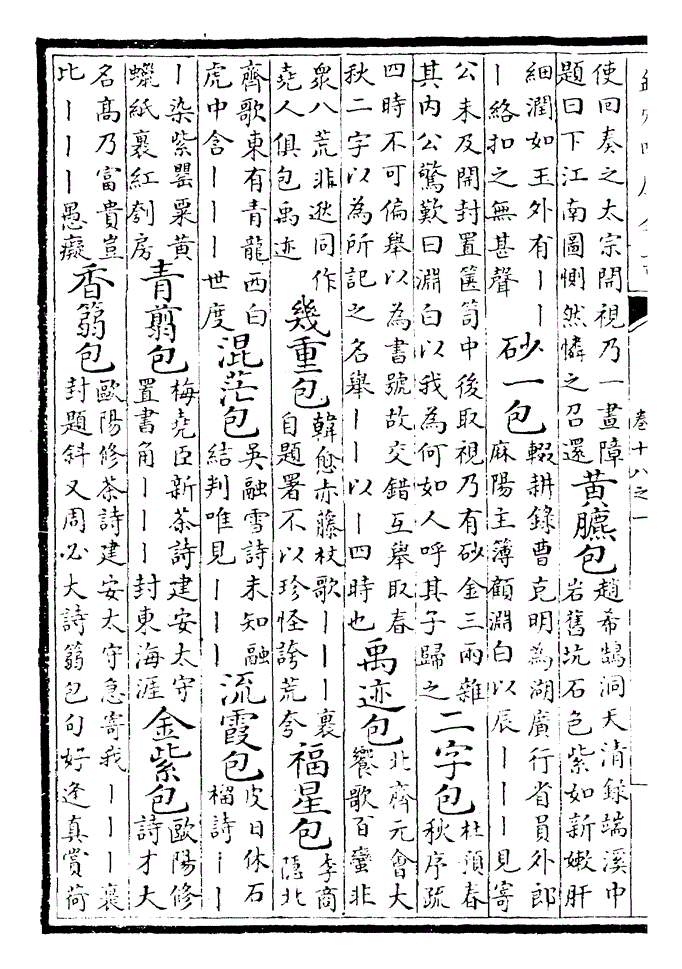 卷十八之一
使回奏之太宗開視乃一畫障
題曰下江南圖惻然憐之召還
黄臕包
趙希鵠洞天清録端溪中
岩舊坑石色紫如新嫩肝
細潤如玉外有丨丨
丨絡扣之無甚聲
砂一包
輟耕錄曹克明為湖廣行省員外郎
麻陽主簿顧淵白以辰丨丨丨見寄
公未及開封置篋笥中後取視乃有砂金三兩雜
其内公驚歎曰淵白以我為何如人呼其子歸之
二字包
杜預春
秋序疏
四時不可偏舉以為書號故交錯互舉取春
秋二字以為所記之名舉丨丨以丨四時也
禹迹包
北齊元會大
饗歌百蠻非
衆八荒非逖同作
堯人俱包禹迹
幾重包
韓愈赤藤杖歌丨丨丨裹
自題署不以珍怪誇荒夸
福星包
李商
隱北
齊歌東有青龍西白
虎中含丨丨丨世度
混茫包
吳融雪詩未知融
結判唯見丨丨丨
流霞包
皮日休石
榴詩丨丨
丨染紫罌粟黄
蠟紙裹紅刳房
青翦包
梅堯臣新茶詩建安太守
置書角丨丨丨封東海涯
金紫包
歐陽修
詩才大
名高乃富貴豈
比丨丨丨愚癡
香篛包
歐陽修茶詩建安太守急寄我丨丨丨裹
封題斜又周必大詩篛包句好逢真賞荷